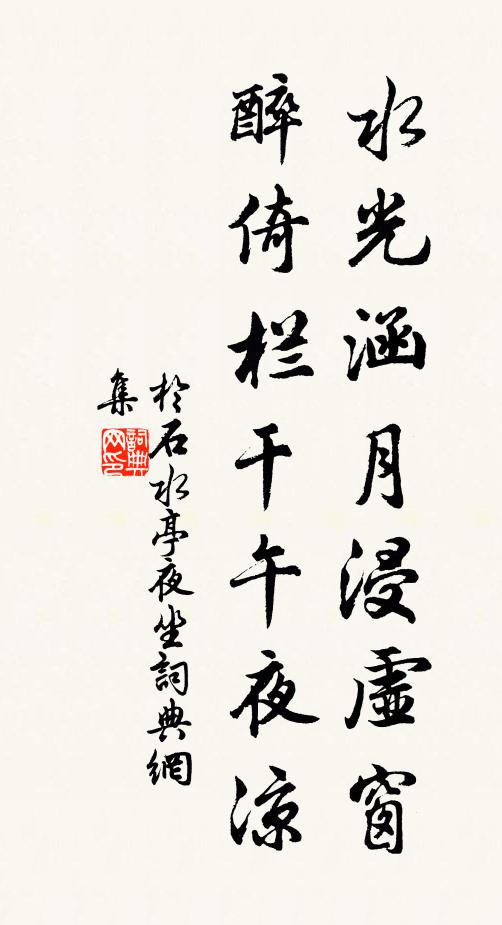 水光涵月浸虛窗
醉倚栏干午夜凉
於石水亭夜坐詞典網
集
詞典
网印